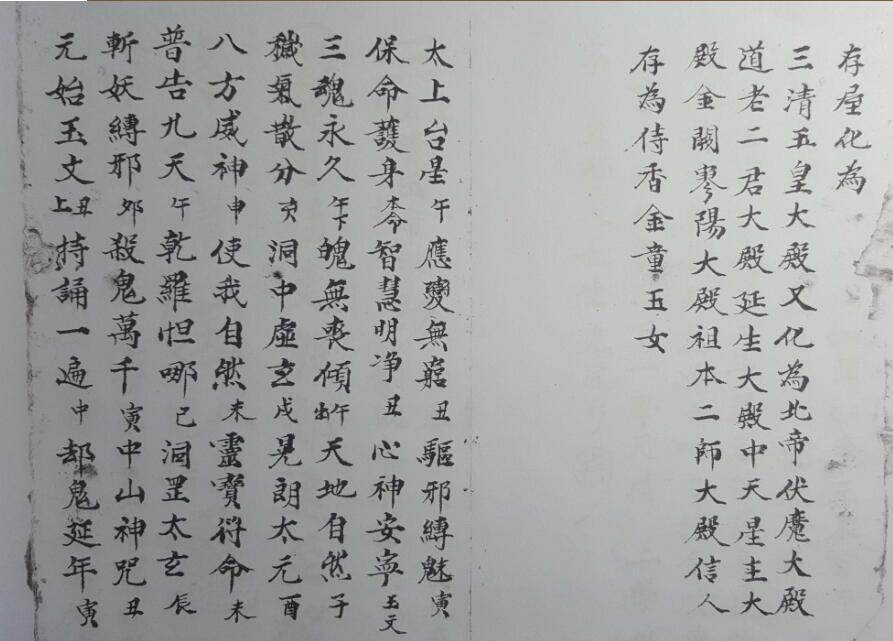 存屋化為
三清五皇大殿又化為北帝伏魔大殿
道老二君大殿延生大殿中天星主大
殿金闕寥陽大殿祖本二師大殿信人
存為侍香金童玉女
太上台星午應變無窮丑驅邪縛魅寅
保命護身本命智慧明净丑心神安寧玉文
三魂永久午下魄無喪傾午出天地自然子
穢氣散分亥洞中虛玄戌晃朗太元酉
八方威神申使我自然未靈寶符命未
普告九天午乾羅怛哪巳洞罡太玄辰
斬妖縛邪卯殺鬼萬千寅中山神咒丑
元始玉文丑上持誦一遍中却鬼延年寅